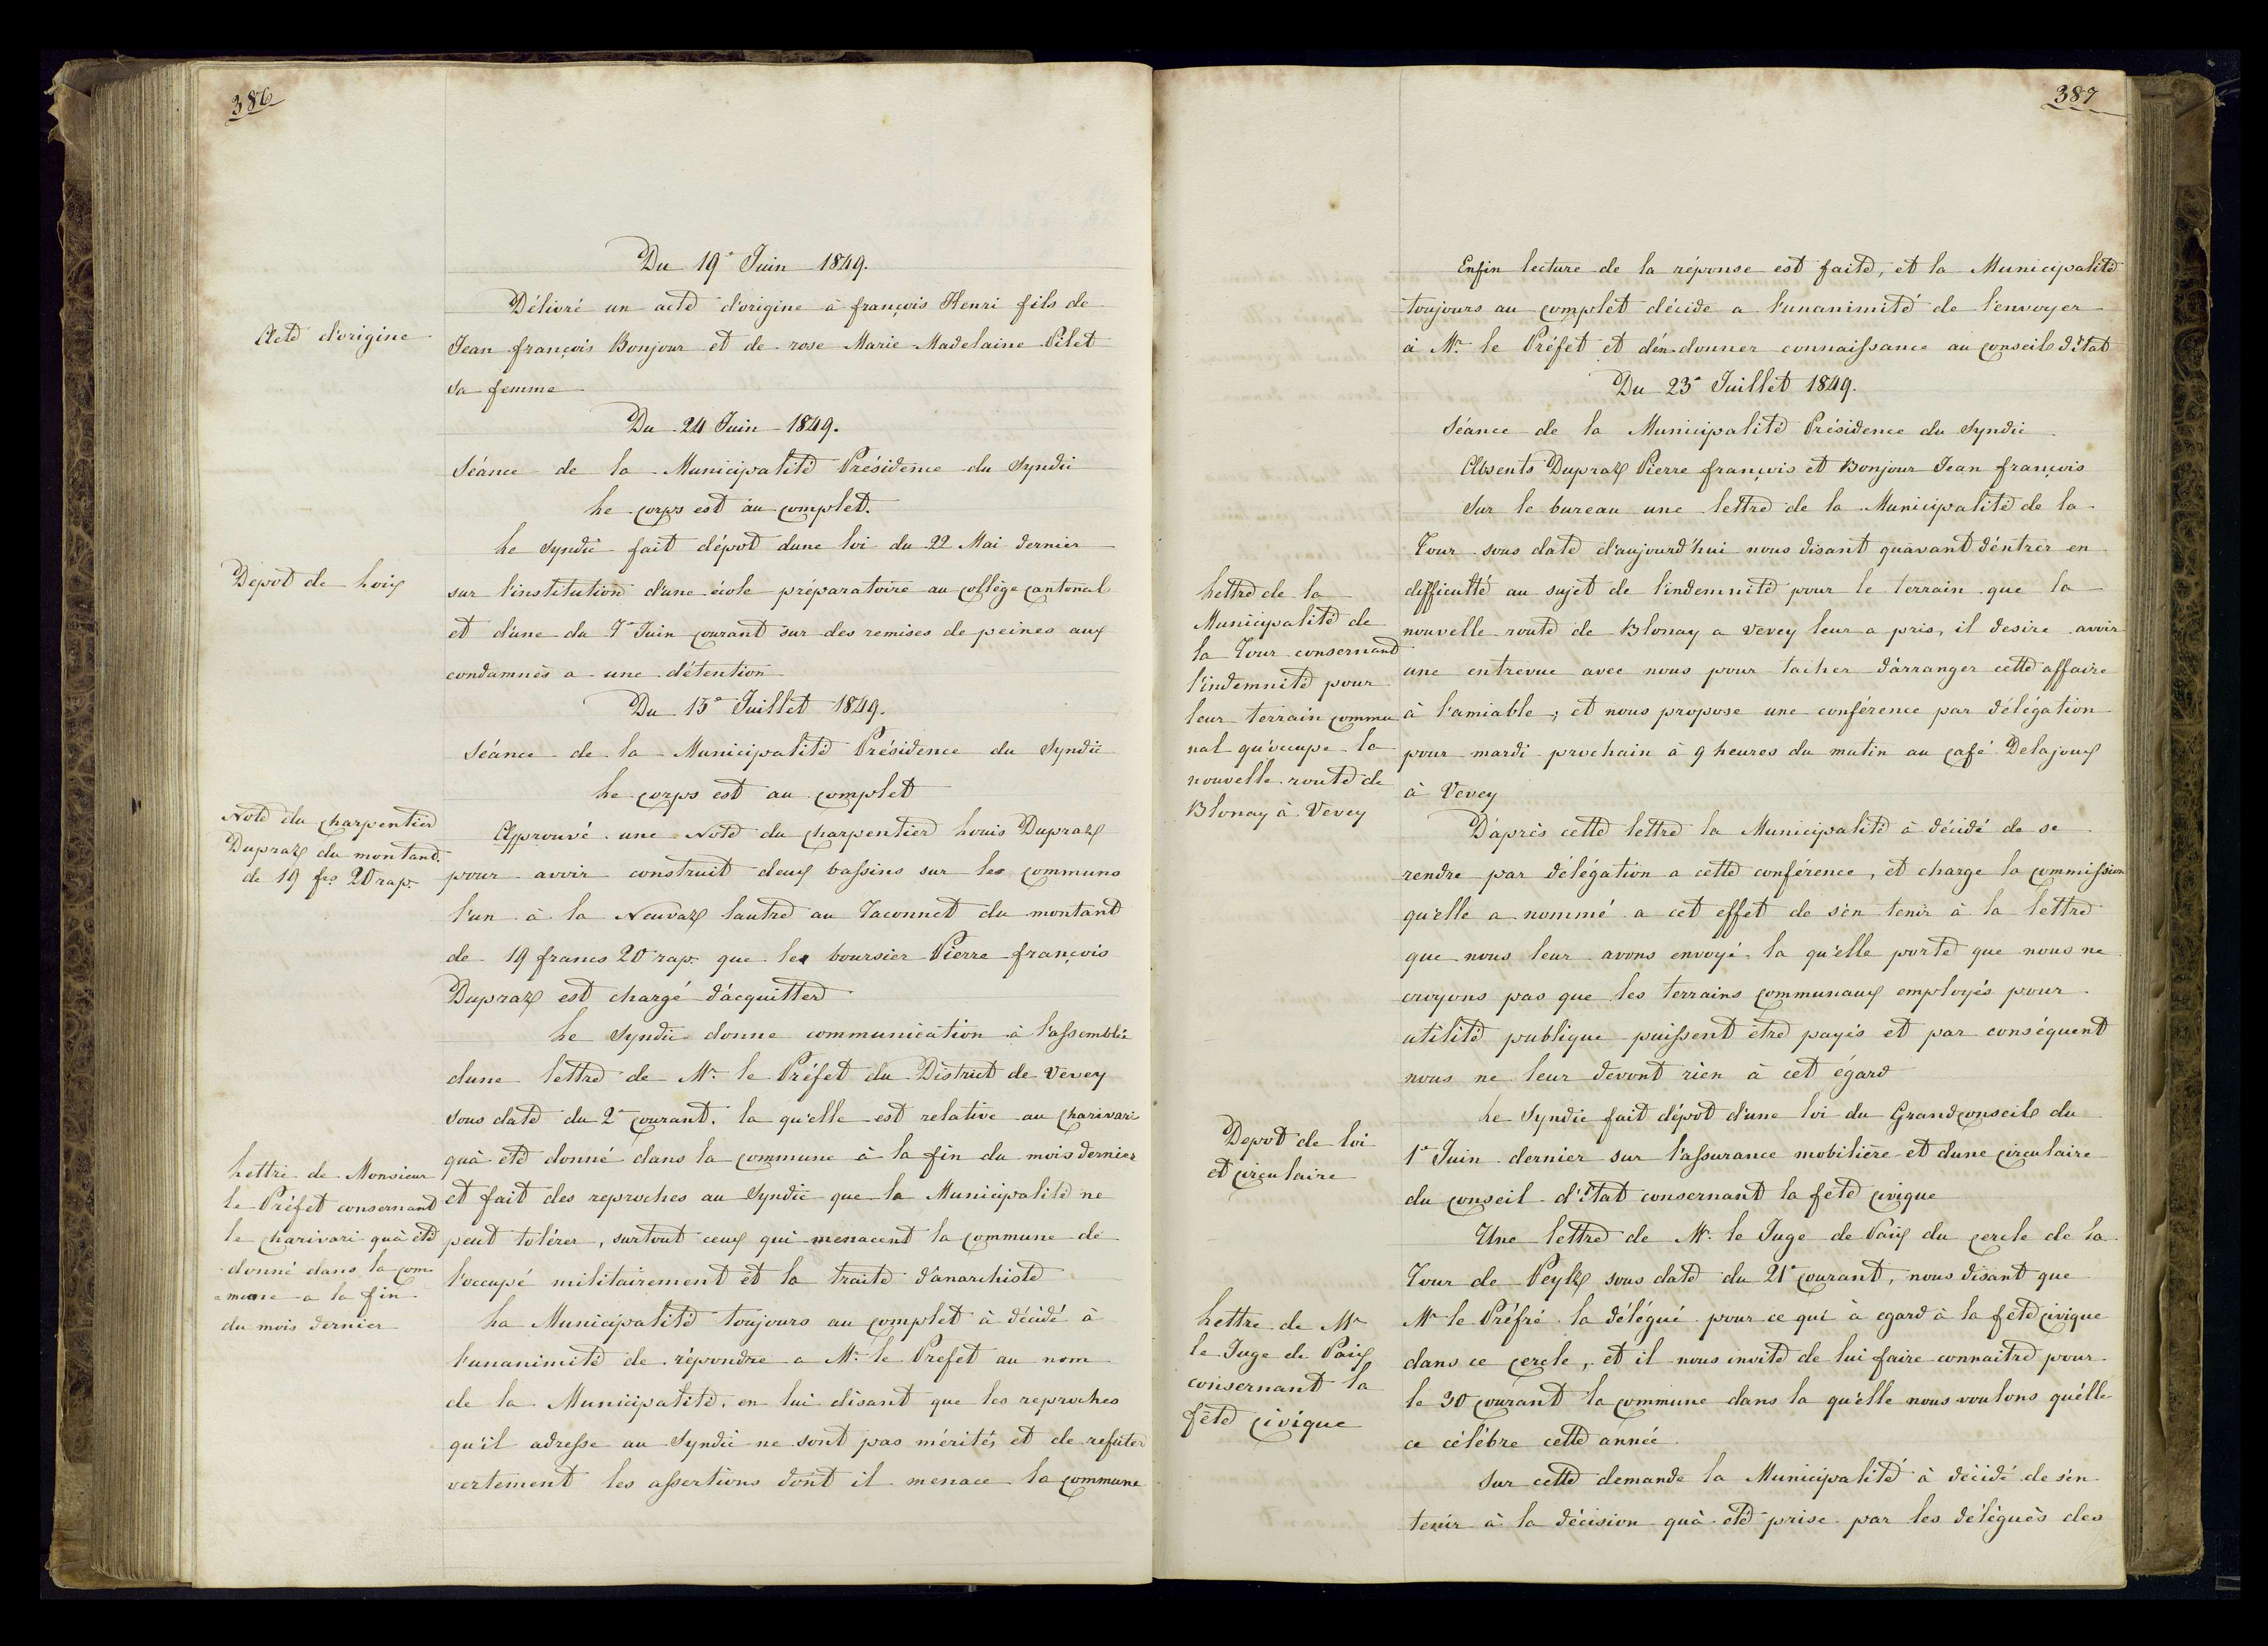 386
Du 19e Juin 1849.
Acte d'origine
Délivré un acte d'origine à françois Henri fils de
Jean françois Bonjour et de rose Marie Madelaine Pilet
sa femme
Du 24 Juin 1849.
Séance de la Municipalité Présidence du Syndic
Le corps est au complet.
Depot de Loix
Le Syndic fait dépot dune loi du 22 Mai dernier
sur l'institution d'une école préparatoire au collège cantonal
et d'une du 7e Juin courant sur des remises de peines aux
condamnès a une détention
Du 15e Juillet 1849.
Séance de la Municipalité Présidence du Syndic
Le corps est au complet
Note du charpentier
Dupraz du montant
de 19 frs 20 rap.
Approuvé une Note du charpentier Louis Dupraz
pour avoir construit deux bassins sur les communs
l'un à la Neuvaz lautre au Taconnet du montant
de 19 francs 20 rap. que le boursier Pierre françois
Dupraz est chargé d'acquitter
Le Syndic donne communication à l'assemblée
dune lettre de Mr. le Préfet du District de Vevey
sous date du 2e courant. la qu'elle est relative au charivari
Lettre de Monsieur
le Préfet consernant
le charivari qu'à été
donné dans la com-
-mune a la fin
du mois dernier
qu'à été donné dans la commune à la fin du mois dernier
et fait des reproches au Syndic que la Municipalité ne
peut tolérer, surtout ceux qui menacent la commune de
l'occupé militairement et la traite d'anarchiste
La Municipalité toujours au complet à décidé à
l'unanimité de répondre a Mr. le Prefet au nom
de la Municipalité, en lui disant que les reproches
qu'il adresse au Syndic ne sont pas mérités et de refuter
vertement les assertions dont il menace la commune
387
Enfin lecture de la réponse est faite, et la Municipalité
toujours au complet décide a l'unanimité de l'envoyer
à Mr. le Préfet et d'en donner connaissance au conseil d'état
Du 23e Juillet 1849.
Séance de la Municipalité Présidence du Syndic
Absents Dupraz Pierre françois et Bonjour Jean françois
Lettre de la
Municipalité de
la Tour consernant
l'indemnité pour
leur terrain commu
nal qu'ocupe la
nouvelle route de
Blonay à Vevey
Sur le bureau une lettre de la Municipalité de la
Tour sous date d'aujourd'hui nous disant qu'avant d'entrer en
difficulté au sujet de l'indemnité pour le terrain que la
nouvelle route de Blonay a Vevey leur a pris, il desire avoir
une entrevue avec nous pour tacher d'arranger cette affaire
à l'amiable; et nous propose une conférence par délégation
pour mardi prochain à 9 heures du matin au café Delajoux
à Vevey
D'après cette lettre la Municipalité à décidé de se
rendre par délégation a cette conférence, et charge la commission
qu'elle a nommé a cet effet de s'en tenir à la lettre
que nous leur avons envoyé, la qu'elle porte que nous ne
croyons pas que les terrains communaux employés pour
utilité publique puissent être payés et par conséquent
nous ne leur devont rien à cet égard
Depot de loi
et circulaire
Le Syndic fait dépot d'une loi du Grand conseil du
1e Juin dernier sur l'assurance mobilière et dune circulaire
du conseil d'état consernant la fête civique
Lettre de Mr
le Juge de Paix
consernant la
fête civique
Une lettre de Mr. le Juge de Paix du cercle de La
Tour de Peylz sous date du 21e courant, nous disant que
Mr le Préfré la délégué pour ce qui à egard à la fête civique
dans ce cercle, et il nous invite de lui faire connaitre pour
le 30 courant la commune dans la qu'elle nous voulons qu'elle
ce célébre cette année.
Sur cette demande la Municipalité à décidé de s'en
tenir à la décision qu'à été prise par les délégués des